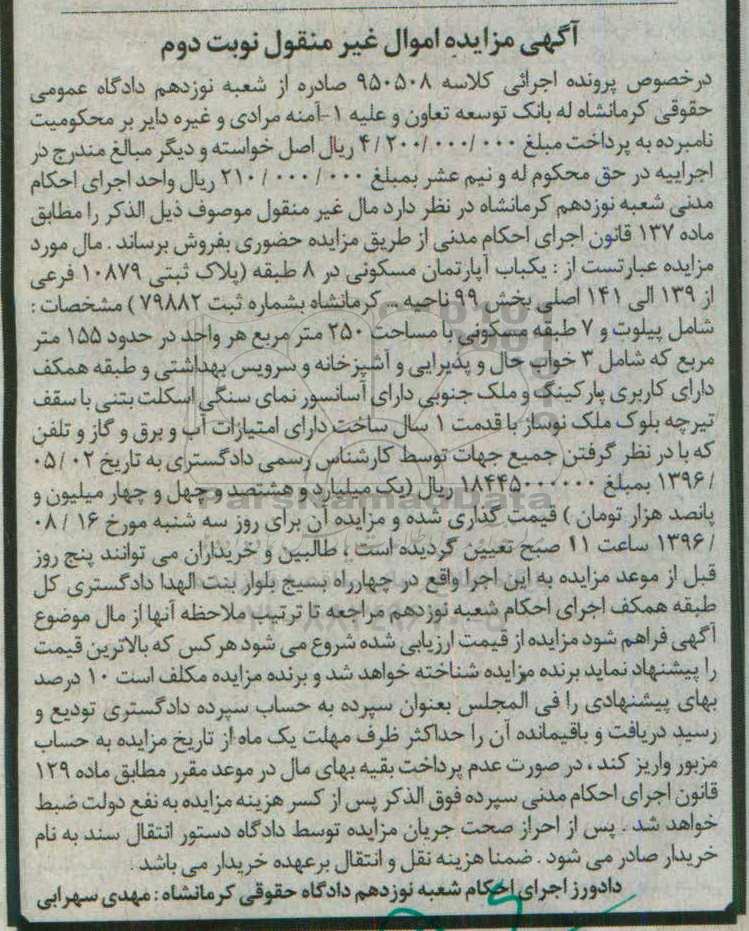 آگهی مزایده اموال غیر منقول نوبت دوم
درخصوص پرونده اجرائی کلاسه ۹۵۰۵۰۸ صادره از شعبه نوزدهم دادگاه عمومی
حقوقی کرمانشاه له بانک توسعه تعاون و علیه ۱-آمنه مرادی و غیره دایر بر محکومیت
نامبرده به پرداخت مبلغ ۴/۲۰۰/۰۰۰/۰۰۰ ریال اصل خواسته و دیگر مبالغ مندرج در
اجراییه در حق محکوم له و نیم عشر بمبلغ ۲۱۰/۰۰۰/۰۰۰ ریال واحد اجرای احکام
مدنی شعبه نوزدهم کرمانشاه در نظر دارد مال غیر منقول موصوف ذیل الذکر را مطابق
ماده ۱۳۷ قانون اجرای احکام مدنی از طریق مزایده حضوری بفروش برساند . مال مورد
مزایده عبارتست از : یکباب آپارتمان مسکونی در ۸ طبقه (پلاک ثبتی ۱۰۸۷۹ فرعی
از ۱۳۹ الی ۱۴۱ اصلی بخش ۹۹ ناحیه ... کرمانشاه بشماره ثبت ۷۹۸۸۲ ) مشخصات :
شامل پیلوت و ۷ طبقه مسکونی با مساحت ۲۵۰ متر مربع هر واحد در حدود ۱۵۵ متر
مربع که شامل ۳ خواب حال و پذیرایی و آشپزخانه و سرویس بهداشتی و طبقه همکف
دارای کاربری پارکینگ و ملک جنوبی دارای آسانسور نمای سنگی اسکلت بتنی با سقف
تیرچه بلوک ملک نوساز با قدمت ۱ سال ساخت دارای امتیازات آب و برق و گاز و تلفن
که با در نظر گرفتن جمیع جهات توسط کارشناس رسمی دادگستری به تاریخ ۰۲ /۰۵
/۱۳۹۶ بمبلغ ۱۸۴۴۵۰۰۰۰۰۰ ریال (یک میلیارد و هشتصد و چهل و چهار میلیون و
پانصد هزار تومان ) قیمت گذاری شده و مزایده آن برای روز سه شنبه مورخ ۱۶ /۰۸
/۱۳۹۶ ساعت ۱۱ صبح تعیین گردیده است ، طالبین و خریداران می توانند پنج روز
قبل از موعد مزایده به این اجرا واقع در چهارراه بسیج بلوار بنت الهدا دادگستری کل
طبقه همکف اجرای احکام شعبه نوزدهم مراجعه تا ترتیب ملاحظه آنها از مال موضوع
آگهی فراهم شود مزایده از قیمت ارزیابی شده شروع می شود هر کس که بالاترین قیمت
را پیشنهاد نماید برنده مزایده شناخته خواهد شد و برنده مزایده مکلف است ۱۰ درصد
بهای پیشنهادی را فی المجلس بعنوان سپرده به حساب سپرده دادگستری تودیع و
رسید دریافت و باقیمانده آن را حداکثر ظرف مهلت یک ماه از تاریخ مزایده به حساب
مزبور واریز کند ، در صورت عدم پرداخت بقیه بهای مال در موعد مقرر مطابق ماده ۱۲۹
قانون اجرای احکام مدنی سپرده فوق الذکر پس از کسر هزینه مزایده به نفع دولت ضبط
خواهد شد . پس از احراز صحت جریان مزایده توسط دادگاه دستور انتقال سند به نام
خریدار صادر می شود . ضمنا هزینه نقل و انتقال برعهده خریدار می باشد .
دادورز اجرای احکام شعبه نوزدهم دادگاه حقوقی کرمانشاه : مهدی سهرابی
ParsNamadData